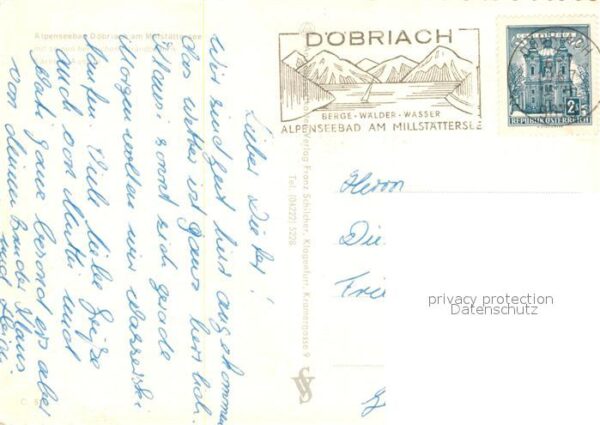 Alpenseebad Döbriach am Millstättersee
DÖBRIACH
BERGE - WÄLDER - WASSER
ALPENSEEBAD AM MILLSTÄTTERSEE
2S
REPUBLIK ÖSTERREICH
Lieber Dieter!
Wir sind heut hier angekommen
das Wetter ist ganz herrlich.
Klausi sonnt sich gerade
Morgen wollen wir Wasserski
laufen. Viele liebe Grüße
auch von Mutti und
Vati ganz besonders aber
von deinem Bruder Klaus
und
Franz Schilcher, Klagenfurt, Kramergasse 9
Tel. (04222) 5228
Herrn
Die
Frie
privacy protection
Datenschutz
C.